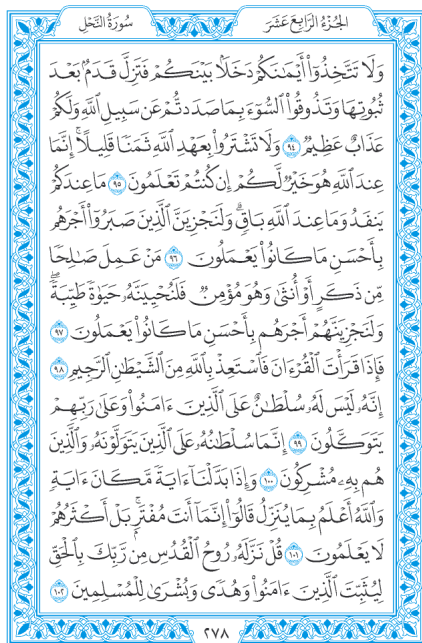 الجُزْءُ الرَّابِعَ عَشَرَ
سُورَةُ النَّحْلِ
وَلَا تَتَّخِذُوٓاْ أَيْمَٰنَكُمْ دَخَلَۢا بَيْنَكُمْ فَتَزِلَّ قَدَمُۢ بَعْدَ
ثُبُوتِهَا وَتَذُوقُواْ ٱلسُّوٓءَ بِمَا صَدَدتُّمْ عَن سَبِيلِ ٱللَّهِ وَلَكُمْ
عَذَابٌ عَظِيمٌ ٩٤ وَلَا تَشْتَرُواْ بِعَهْدِ ٱللَّهِ ثَمَنٗا قَلِيلًاۚ إِنَّمَا
عِندَ ٱللَّهِ هُوَ خَيْرٞ لَّكُمْ إِن كُنتُمْ تَعْلَمُونَ ٩٥ مَا عِندَكُمْ
يَنفَدُ وَمَا عِندَ ٱللَّهِ بَاقٖۗ وَلَنَجْزِيَنَّ ٱلَّذِينَ صَبَرُوٓاْ أَجْرَهُم
بِأَحْسَنِ مَا كَانُواْ يَعْمَلُونَ ٩٦ مَنْ عَمِلَ صَٰلِحٗا
مِّن ذَكَرٍ أَوْ أُنثَىٰ وَهُوَ مُؤْمِنٞ فَلَنُحْيِيَنَّهُۥ حَيَوٰةٗ طَيِّبَةٗۖ
وَلَنَجْزِيَنَّهُمْ أَجْرَهُم بِأَحْسَنِ مَا كَانُواْ يَعْمَلُونَ ٩٧
فَإِذَا قَرَأْتَ ٱلْقُرْءَانَ فَٱسْتَعِذْ بِٱللَّهِ مِنَ ٱلشَّيْطَٰنِ ٱلرَّجِيمِ ٩٨
إِنَّهُۥ لَيْسَ لَهُۥ سُلْطَٰنٌ عَلَى ٱلَّذِينَ ءَامَنُواْ وَعَلَىٰ رَبِّهِمْ
يَتَوَكَّلُونَ ٩٩ إِنَّمَا سُلْطَٰنُهُۥ عَلَى ٱلَّذِينَ يَتَوَلَّوْنَهُۥ وَٱلَّذِينَ
هُم بِهِۦ مُشْرِكُونَ ١٠٠ وَإِذَا بَدَّلْنَآ ءَايَةٗ مَّكَانَ ءَايَةٖ
وَٱللَّهُ أَعْلَمُ بِمَا يُنَزِّلُ قَالُوٓاْ إِنَّمَآ أَنتَ مُفْتَرِۭۚ بَلْ أَكْثَرُهُمْ
لَا يَعْلَمُونَ ١٠١ قُلْ نَزَّلَهُۥ رُوحُ ٱلْقُدُسِ مِن رَّبِّكَ بِٱلْحَقِّ
لِيُثَبِّتَ ٱلَّذِينَ ءَامَنُواْ وَهُدٗى وَبُشْرَىٰ لِلْمُسْلِمِينَ ١٠٢
٢٧٨